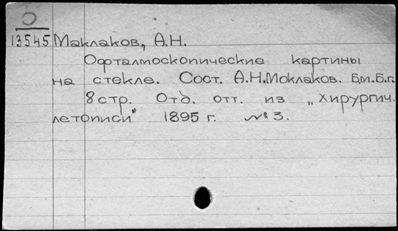 О
13545 Маклаков, А.Н.
Офталмоскопические картины
на стекле. Сост. А.Н.Моклаков. Б.м.Б.г.
8 стр. Отд. отт. из „Хирургич.
летописи" 1895 г. №3.